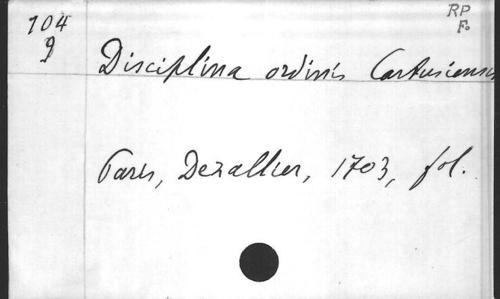 104
g
RP
F.
Disciplina ordinis Cartusiensis
Paris, Dezallier, 1703, fol.